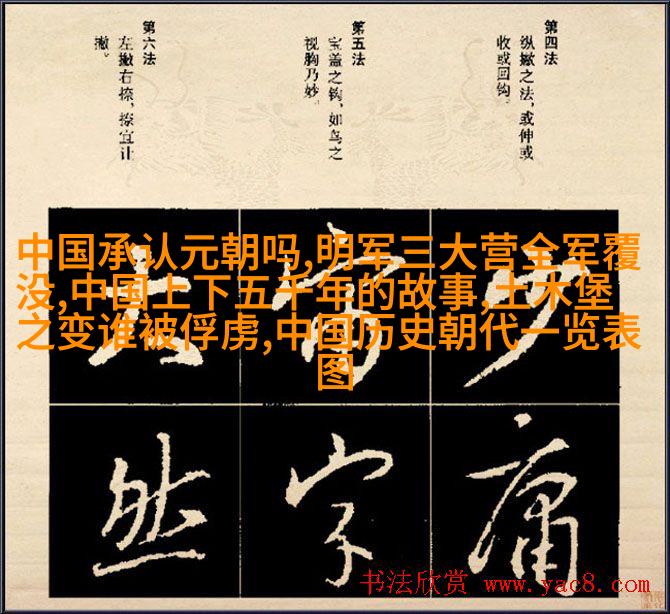 第四法
纵撇之法，或伸或
收或回钩。
第五法
宝盖之钩，如鸟之
视胸乃妙。
第六法
左撇右捺，捺宜让
撇。
中国承认元朝吗,明军三大营全军覆
没,中国上下五千年的故事,土木堡
之变谁被俘虏,中国历史朝代一览表
图
庸
字
然
书法欣赏 www.yac8.com